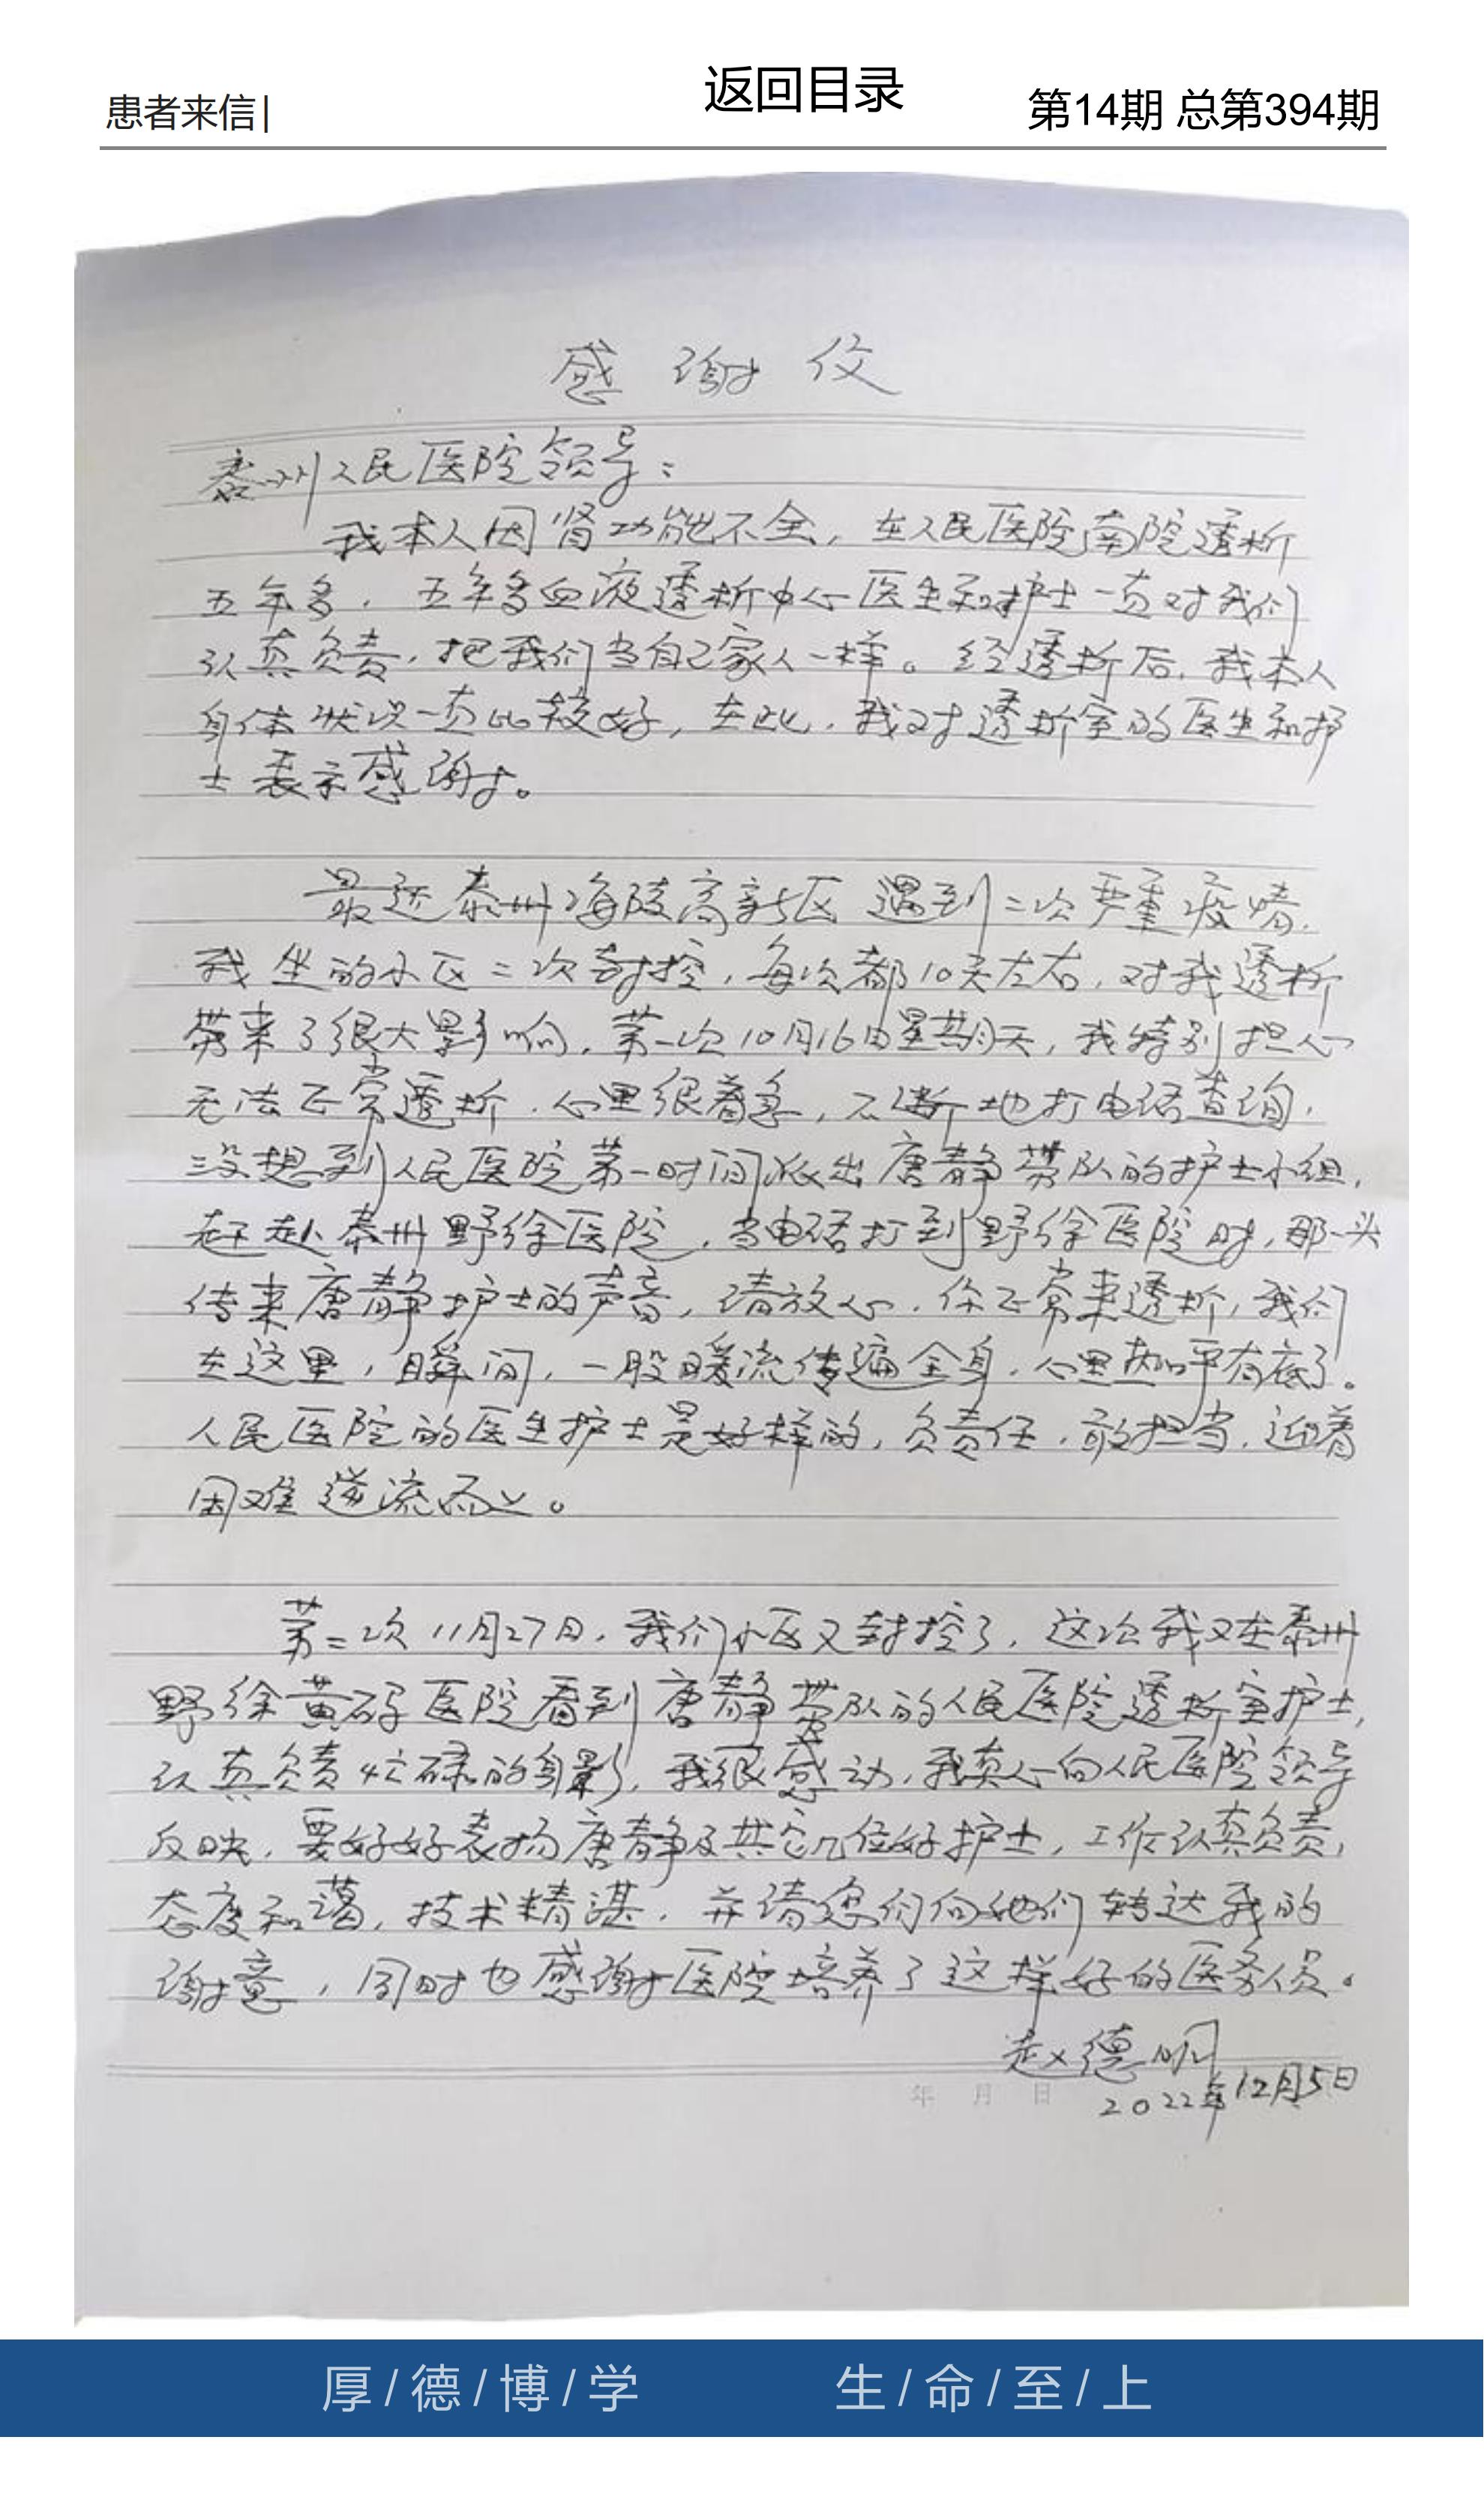 患者来信|
返回目录
第14期 总第394期
感谢信
泰州人民医院领导：
我本人因肾功能不全，在人民医院南院透析
五年多，五年多血液透析中心医生和护士一直对我们
认真负责，把我们当自己家人一样。经透析后，我本人
身体状况一直比较好，在此，我对透析室的医生和护
士表示感谢。
最近泰州海陵高新区遇到二次严重疫情，
我坐的小区二次封控，每次都10天左右，对我透析
带来了很大影响，第一次10月16日星期天，我特别担心
无法正常透析，心里很着急，不断地打电话查询，
没想到人民医院第一时间派出唐静带队的护士小组，
赶赴泰州野徐医院，当电话打到野徐医院时，那一头
传来唐静护士的声音，请放心，你正常来透析，我们
在这里，瞬间，一股暖流传遍全身，心里热呼有底了。
人民医院的医生护士是好样的，负责任，敢担当，迎着
困难逆流而上。
第二次11月27日，我们小区又封控了，这次我又在泰州
野徐黄码医院看到唐静带队的人民医院透析室护士，
认真负责忙碌的身影，我很感动，我真心向人民医院领导
反映，要好好表扬唐静及其它几位好护士，工作认真负责，
态度和蔼，技术精湛，并请您们向她们转达我的
谢意，同时也感谢医院培养了这样好的医务人员。
赵德明
年 月 日
2022年12月5日
厚/德/博/学 生/命/至/上